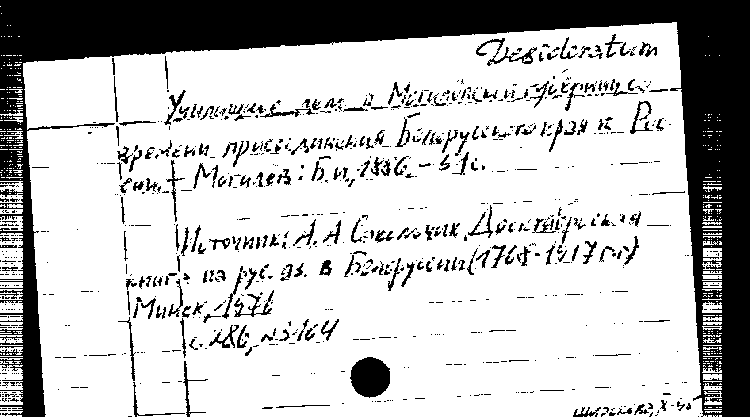 Desideratum
Училищное дело в Могилевской губернии со
времени присоединения Белорусского края к Рос
сии. - Могилев: Б.и., 1886. - 51с.
Источник: А.А Сокольчик Дооктябрьская
книга на рус. яз. в Белоруссии (1768-1917 г.г)
Минск, 1976
с. 286, №3164